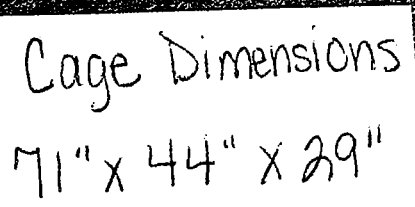 Cage Dimensions
71" x 44" x 29"